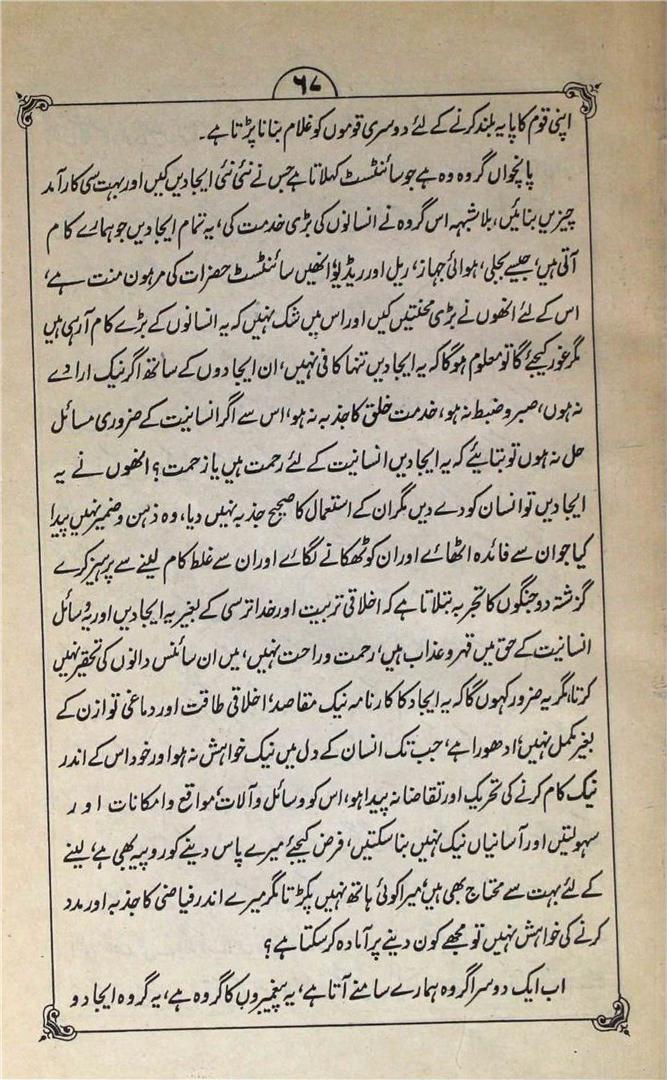 ۶۷
اپنی قوم کا پایہ بلند کرنے کے لئے دوسری قوموں کو غلام بنانا پڑتا ہے۔
پانچواں گروہ وہ ہے جو سائنٹسٹ کہلاتا ہے جس نے نئی نئی ایجادیں کیں اور بہت سی کارآمد
چیزیں بنائیں، بلاشبہہ اس گروہ نے انسانوں کی بڑی خدمت کی، یہ تمام ایجادیں جو ہمارے کام
آتی ہیں، جیسے بجلی، ہوائی جہاز، ریل اور ریڈیو، انھیں سائنٹسٹ حضرات کی مرہون منت ہے،
اس کے لئے انھوں نے بڑی محنتیں کیں اور اس میں شک نہیں کہ یہ انسانوں کے بڑے کام آرہی ہیں
مگر غور کیجئے گا تو معلوم ہوگا کہ یہ ایجادیں تنہا کافی نہیں، ان ایجادوں کے ساتھ اگر نیک ارادے
نہ ہوں، صبر و ضبط نہ ہو، خدمت خلق کا جذبہ نہ ہو، اس سے اگر انسانیت کے ضروری مسائل
حل نہ ہوں تو بتایئے کہ یہ ایجادیں انسانیت کے لئے رحمت ہیں یا زحمت؟ انھوں نے یہ
ایجادیں تو انسان کو دے دیں مگر ان کے استعمال کا صحیح جذبہ نہیں دیا، وہ ذہن و ضمیر نہیں پیدا
کیا جو ان سے فائدہ اٹھائے اور ان کو ٹھکانے لگائے اور ان سے غلط کام لینے سے پرہیز کرے
گزشتہ دو جنگوں کا تجربہ بتلاتا ہے کہ اخلاقی تربیت اور خدا ترسی کے بغیر یہ ایجادیں اور یہ وسائل
انسانیت کے حق میں قہر و عذاب ہیں، رحمت و راحت نہیں، میں ان سائنس دانوں کی تحقیر نہیں
کرتا، مگر یہ ضرور کہوں گا کہ یہ ایجاد کا کارنامہ نیک مقاصد، اخلاقی طاقت اور دماغی توازن کے
بغیر مکمل نہیں، ادھورا ہے، جب تک انسان کے دل میں نیک خواہش نہ ہو اور خود اس کے اندر
نیک کام کرنے کی تحریک اور تقاضا نہ پیدا ہو، اس کو وسائل و آلات، مواقع و امکانات اور
سہولتیں اور آسانیاں نیک نہیں بنا سکتیں، فرض کیجئے میرے پاس دینے کو روپیہ بھی ہے، لینے
کے لئے بہت سے محتاج بھی ہیں، میرا کوئی ہاتھ نہیں پکڑتا مگر میرے اندر فیاضی کا جذبہ اور مدد
کرنے کی خواہش نہیں تو مجھے کون دینے پر آمادہ کر سکتا ہے؟
اب ایک دوسرا گروہ ہمارے سامنے آتا ہے، یہ پیغمبروں کا گروہ ہے، یہ گروہ ایجاد و